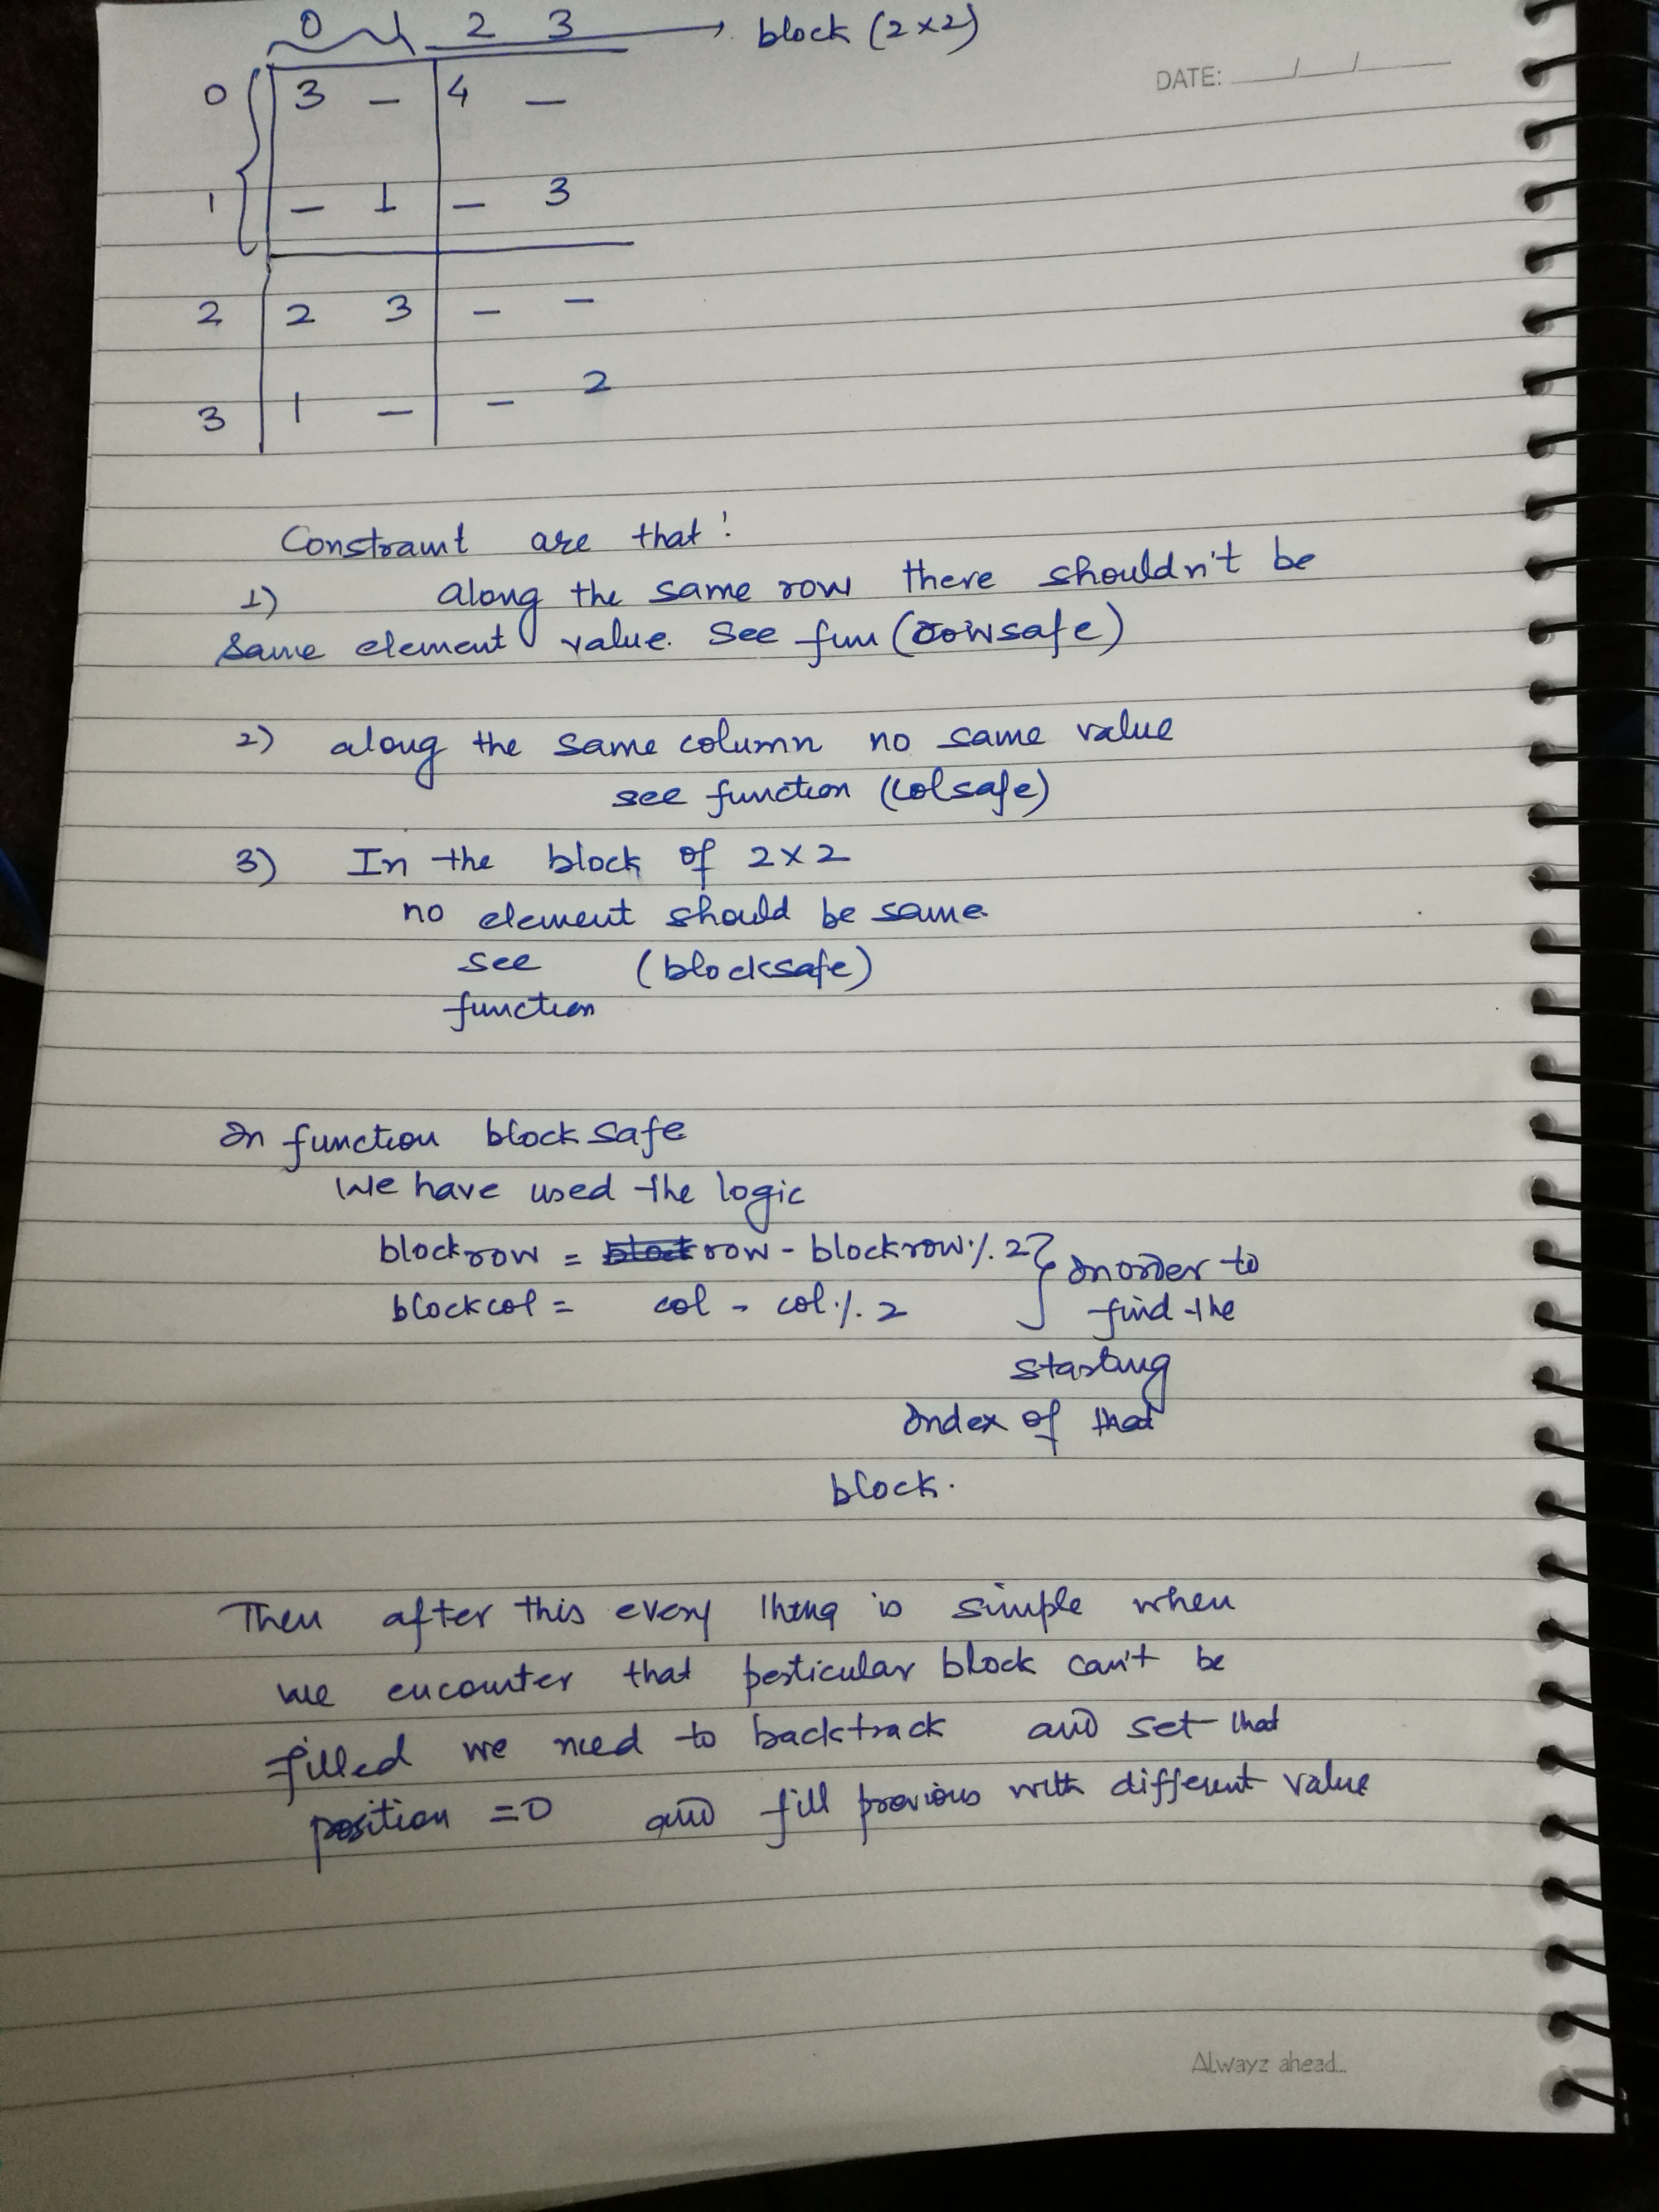 0 1 2 3 → block (2×2)
DATE: __/__/__
0 3 – 4 –
1 – 1 – 3
2 2 3 – –
3 1 – – 2
Constraint are that :
1) along the same row there shouldn't be
same element value. See fun (rowsafe)
2) along the same column no same value
see function (colsafe)
3) In the block of 2×2
no element should be same.
see (blocksafe)
function
In function blocksafe
We have used the logic
blockrow = row - blockrow % 2 } In order to
blockcol = col - col % 2 find the
starting
Index of that
block.
Then after this every thing is simple when
we encounter that perticular block can't be
filled we need to backtrack and set that
position = 0 and fill previous with different value
Alwayz ahead...